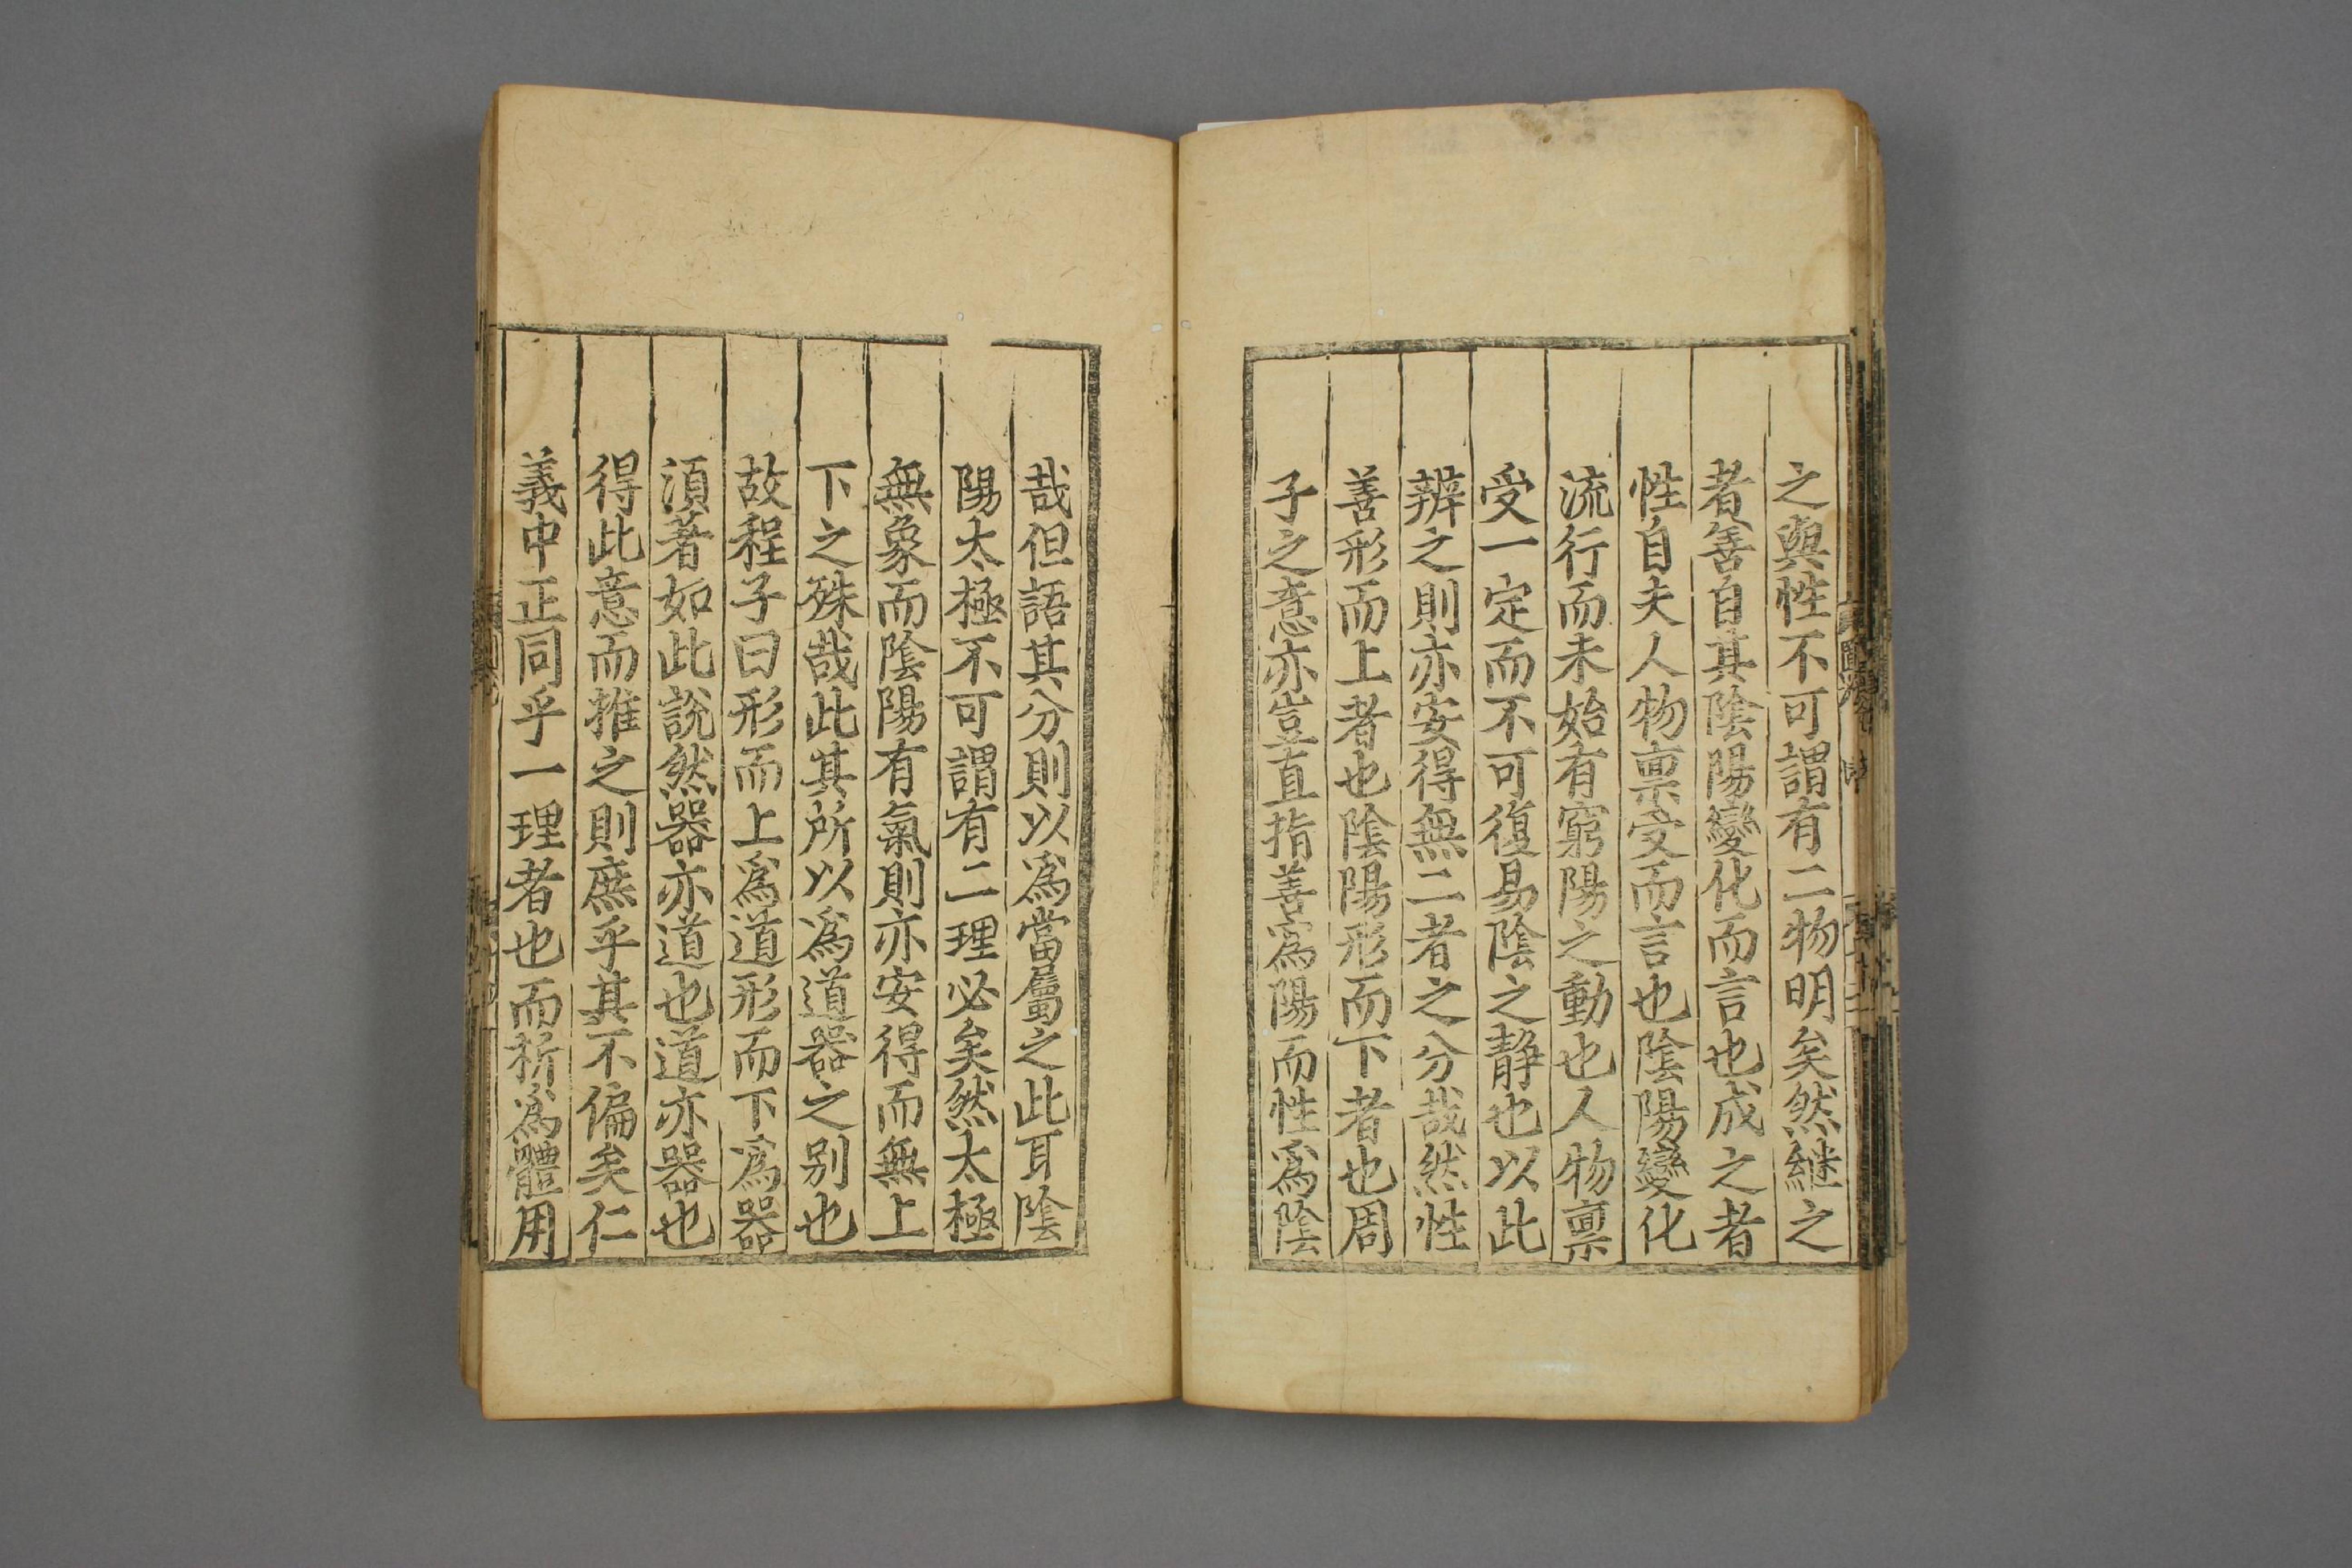 之與性不可謂有二物明矣然継之
者善自其陰陽變化而言也成之者
性自夫人物禀受而言也陰陽變化
流行而未始有窮陽之動也人物禀
受一定而不可復易陰之静也以此
辨之則亦安得無二者之分哉然性
善形而上者也陰陽形而下者也周
子之意亦豈直指善爲陽而性爲陰
哉但語其分則以爲當屬之此耳陰
陽太極不可謂有二理必矣然太極
無象而陰陽有氣則亦安得而無上
下之殊哉此其所以爲道器之别也
故程子曰形而上爲道形而下爲器
湏著如此說然器亦道也道亦器也
得此意而推之則庶乎其不偏矣仁
義中正同乎一理者也而析爲體用